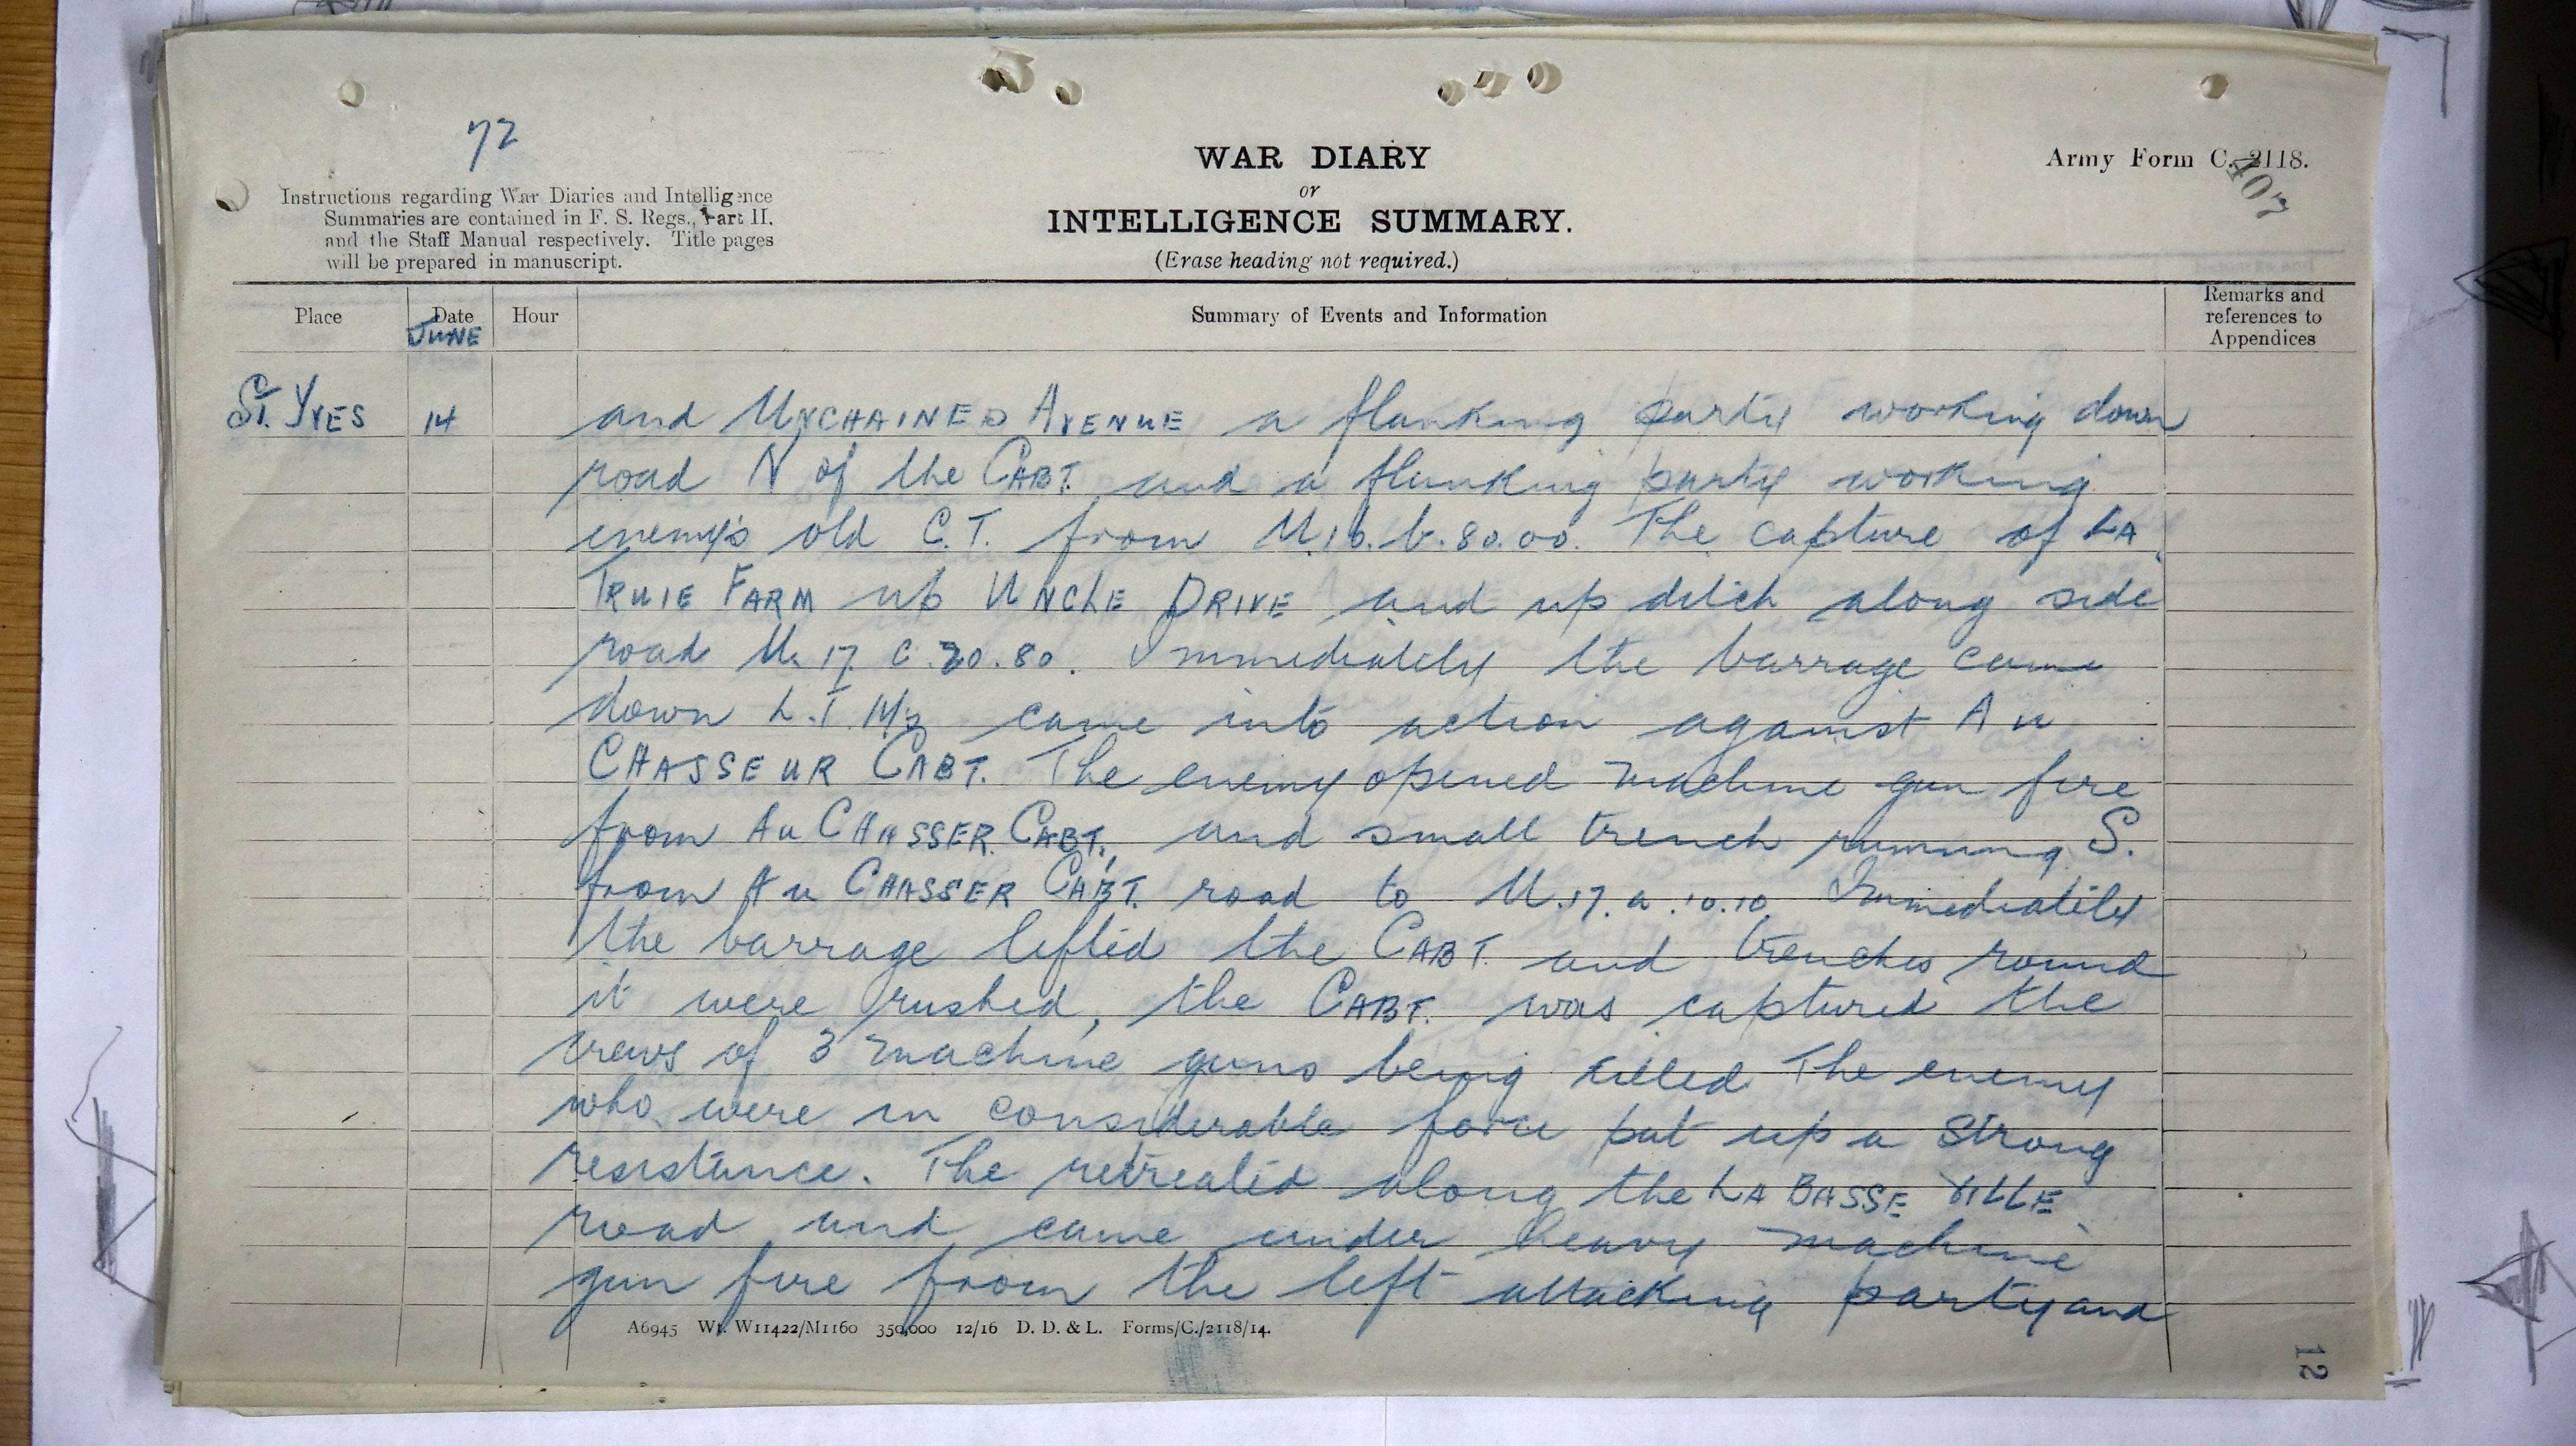 72
WAR DIARY
or
INTELLIGENCE SUMMARY.
(Erase heading not required.)
Army Form C. 2118.
407
Instructions regarding War Diaries and Intelligence
Summaries are contained in F. S. Regs., Part II.
and the Staff Manual respectively. Title pages
will be prepared in manuscript.
Place Date Hour Summary of Events and Information Remarks and
references to
Appendices
JUNE
St. YVES 14 and UNCHAINED AVENUE a flanking party working down
road N of the CABT. and a flanking party working
enemy's old C.T. from U.16.b.80.00. The capture of LA
TRUIE FARM up UNCLE DRIVE and up ditch along side
road U.17.c.20.80. Immediately the barrage came
down L.T.M's came into action against AU
CHASSEUR CABT. The enemy opened machine gun fire
from AU CHASSER CABT, and small trench running S.
from AU CHASSER CABT. road to U.17.a.10.10 Immediately
the barrage lifted the CABT. and trenches round
it were rushed, the CABT. was captured the
crews of 3 machine guns being killed The enemy
who were in considerable force put up a strong
resistance. The retreated along the LA BASSE VILLE
road and came under heavy machine
gun fire from the left attacking party and
A6945 Wt. W11422/M1160 350,000 12/16 D. D. & L. Forms/C./2118/14.
12